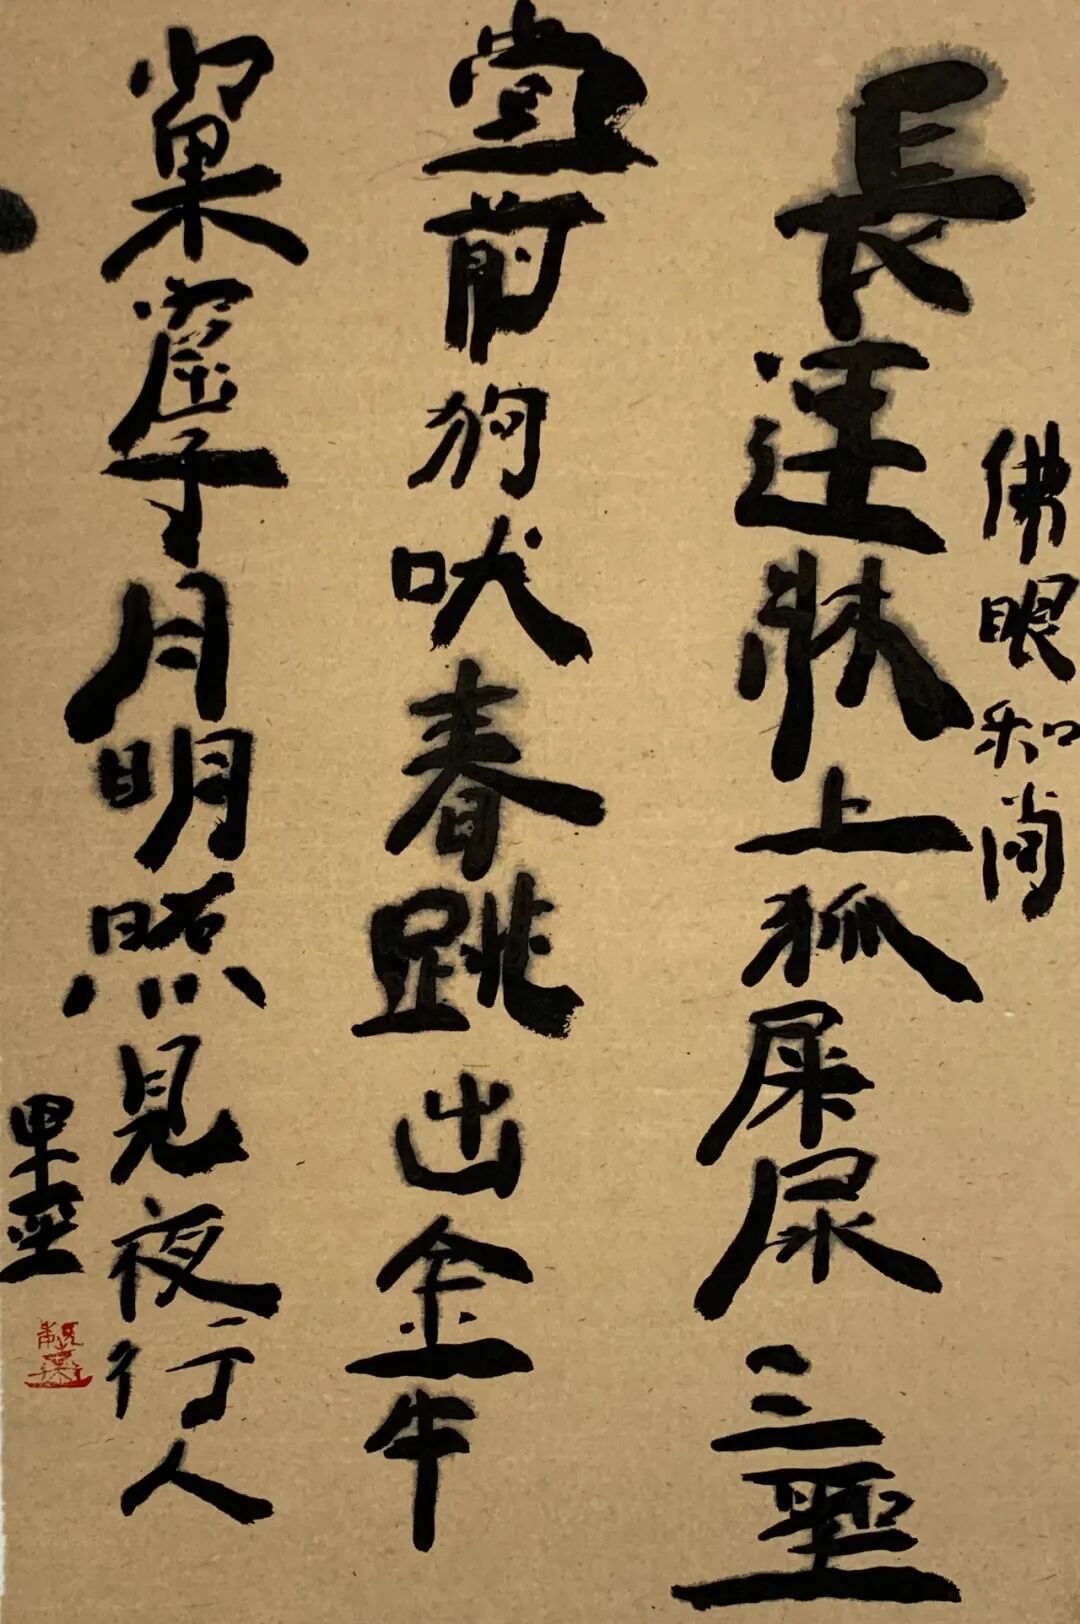 佛眼和尚
長連牀上狐屎尿三聖
堂前狗吠春跳出金牛
窠窟子月明照見夜行人
果